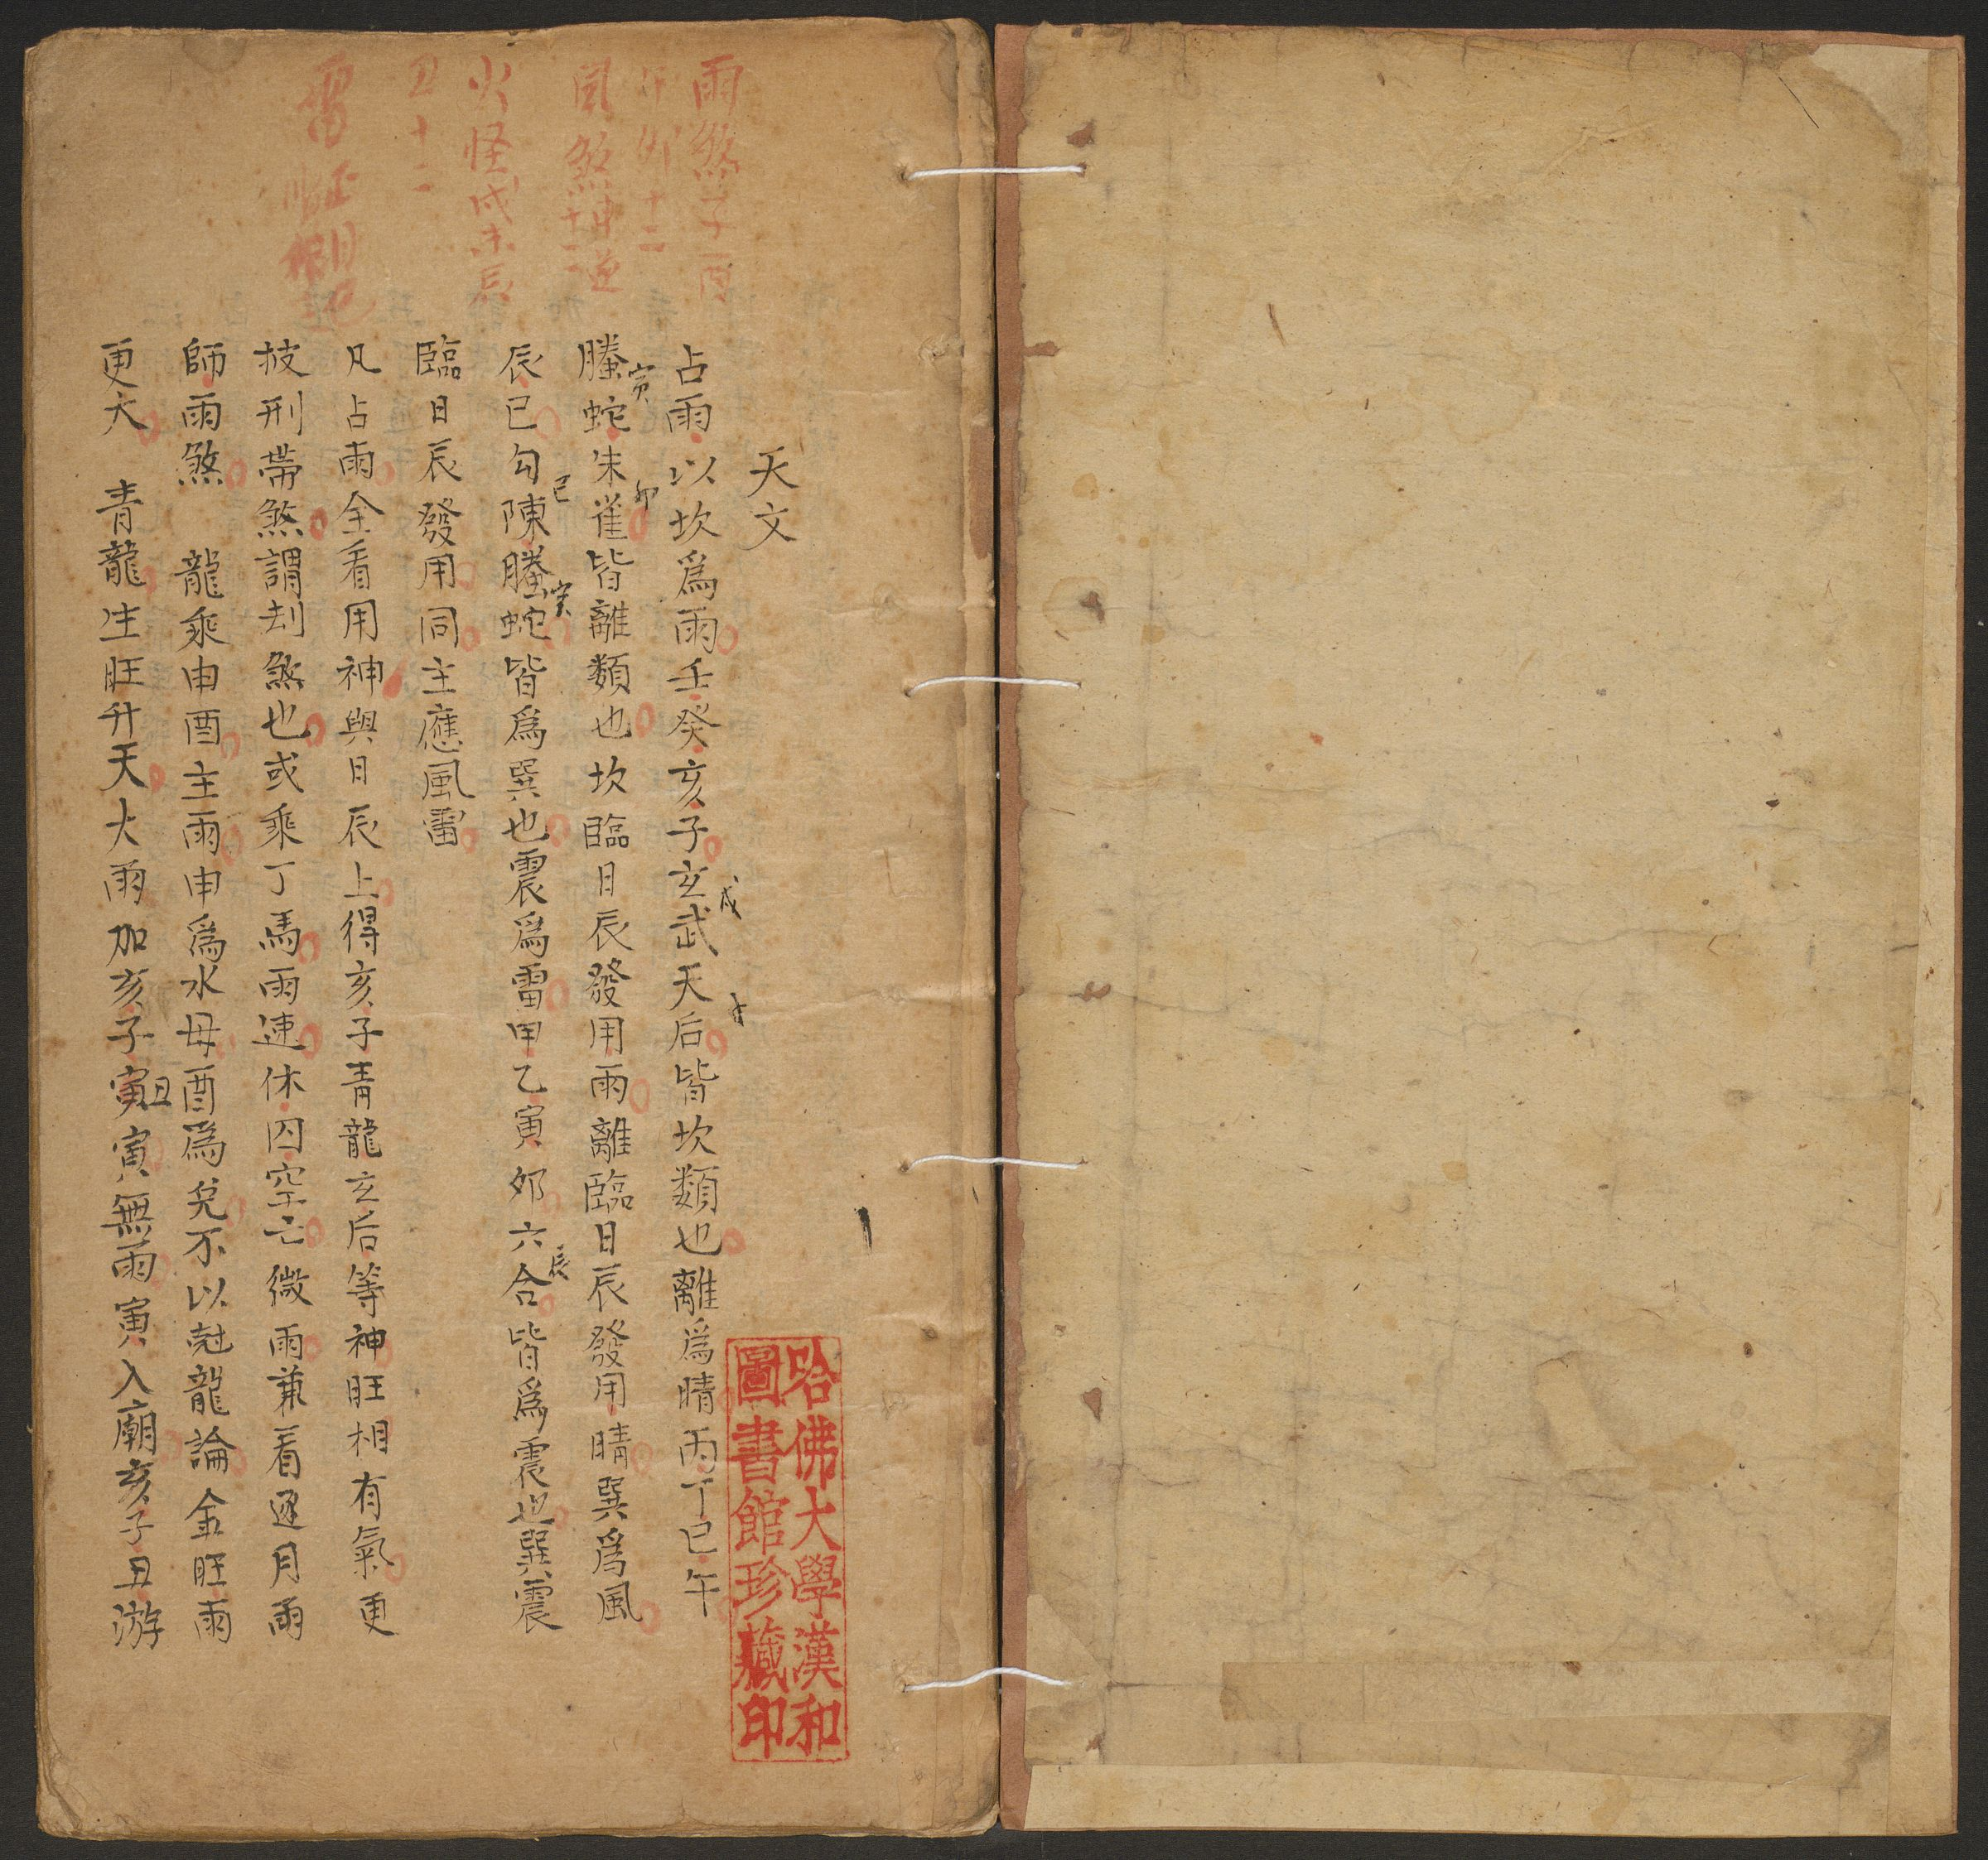 天文
占雨以坎為雨壬癸亥子玄武天后皆坎類也離為晴丙丁巳午
戌
寅
卯
螣蛇朱雀皆離類也坎臨日辰發用雨離臨日辰發用晴巽為風
巳
寅
辰
辰巳勾陳螣蛇皆為巽也震為雷甲乙寅卯六合皆為震也巽震
臨日辰發用同主應風雷
凡占雨全看用神與日辰上得亥子青龍玄后等神旺相有氣更
披刑帶煞謂刦煞也或乘丁馬雨速休囚空亡微雨兼看逐月雨
師雨煞 龍乘申酉主雨申為水母酉為兌不以尅龍論金旺雨
丑
更大 青龍生旺升天大雨加亥子寅寅無雨寅入廟亥子丑游
雨煞子酉
卯十二
風煞申逆十二
火怪戌未辰
丑十二
雷
哈佛大學漢和
圖書館珍藏印